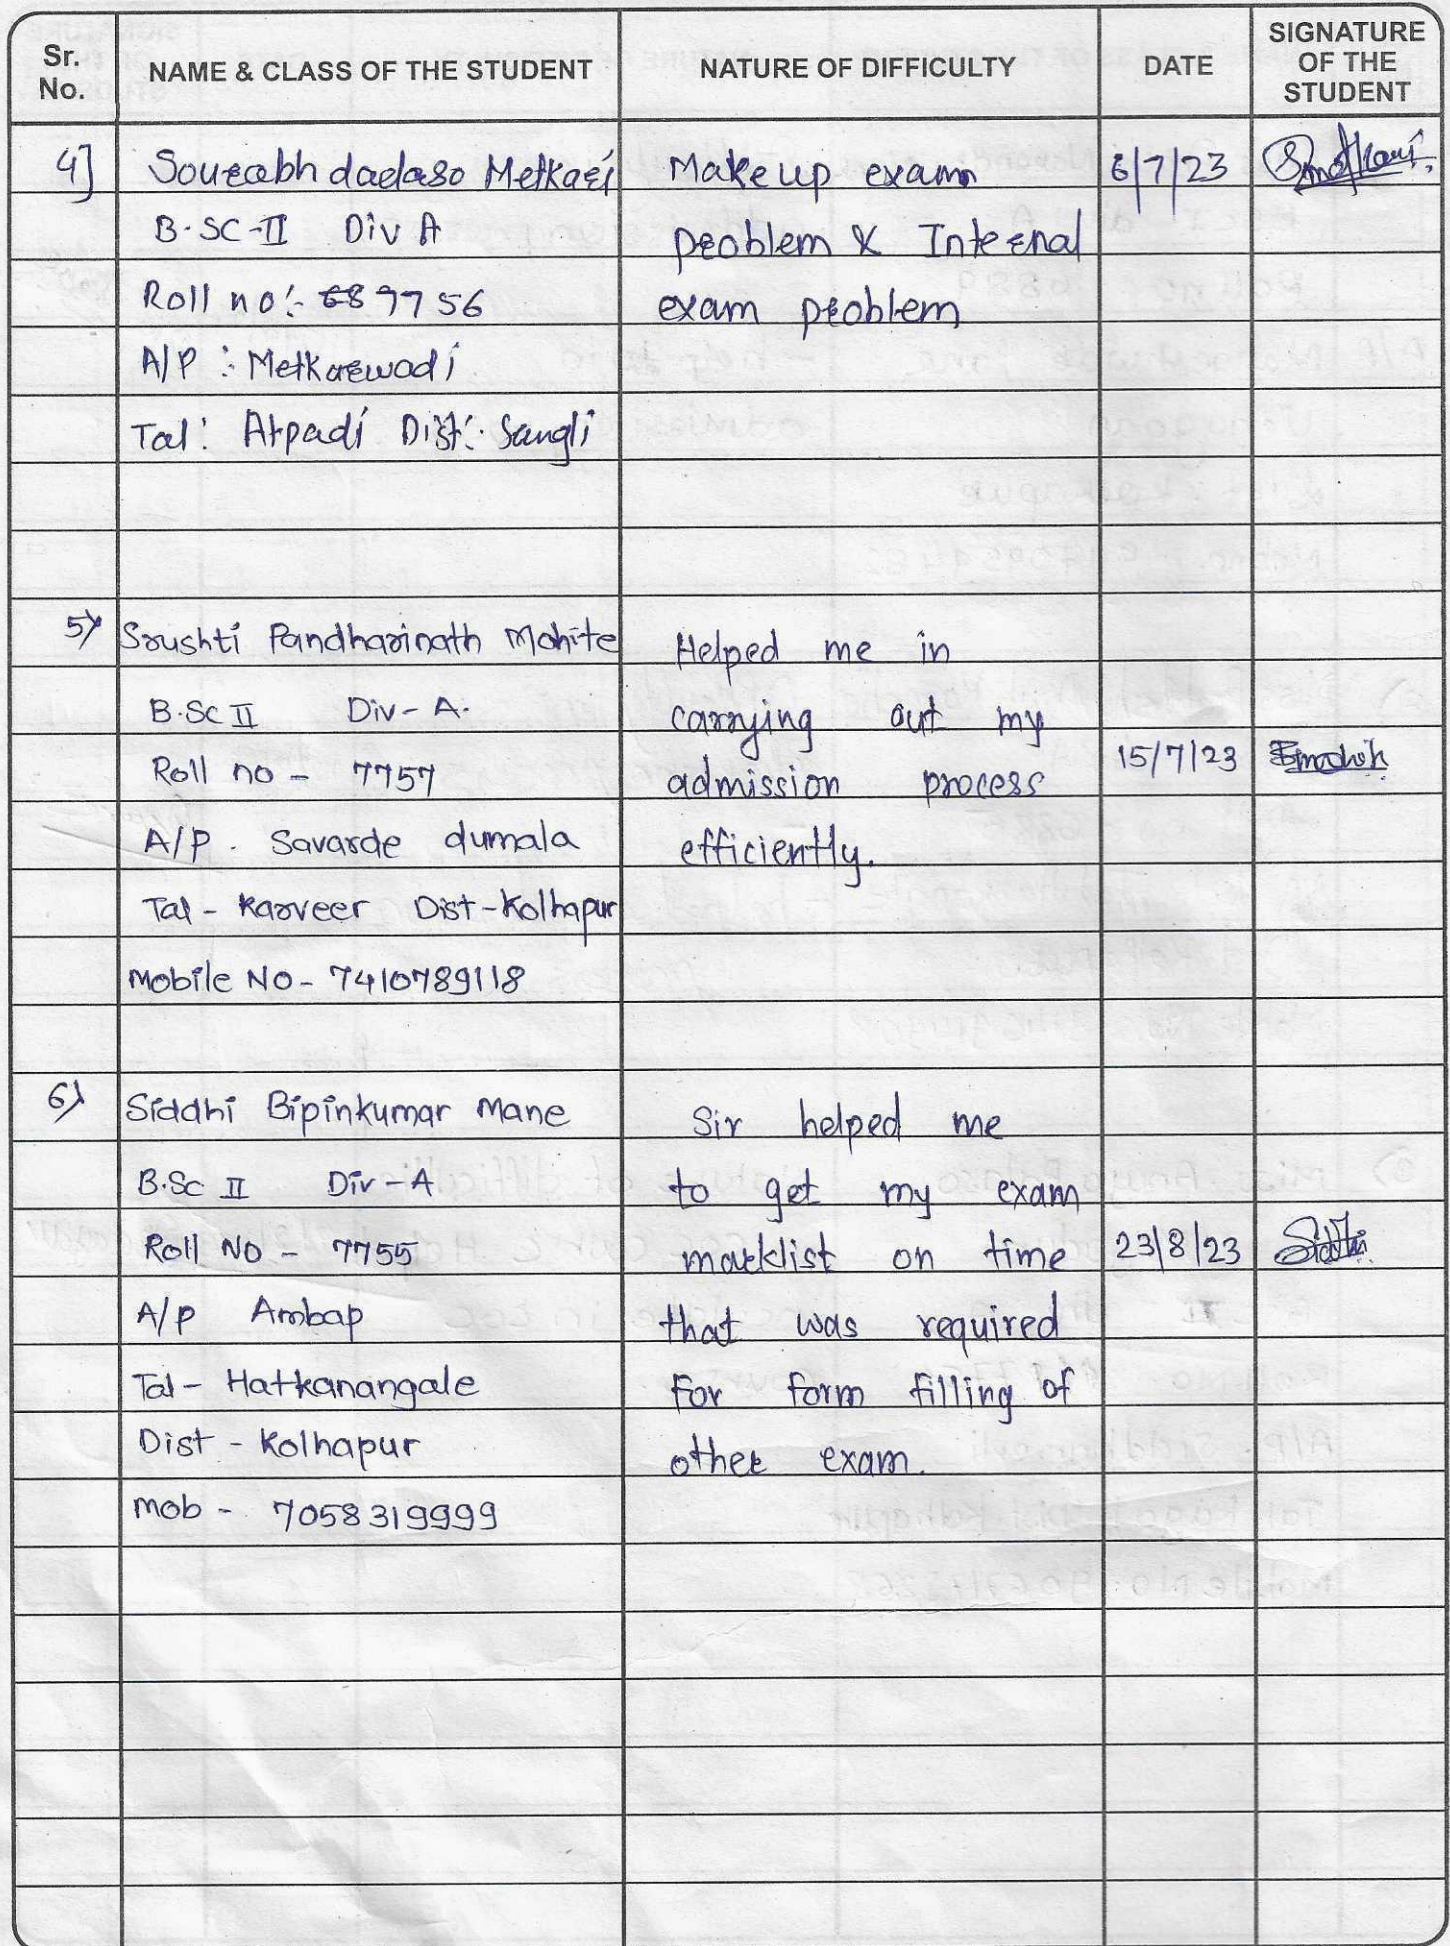 Sr. No.
NAME & CLASS OF THE STUDENT
NATURE OF DIFFICULTY
DATE
SIGNATURE OF THE STUDENT
4]
Sourabh dadaso Metkari
B.SC-II Div A
Roll no:- 7756
A/P : Metkarwadi
Tal: Atpadi Dist:- Sangli
Makeup exam
problem & Internal
exam problem
6/7/23
5)
Srushti Pandharinath Mohite
B.Sc II Div-A.
Roll no - 7757
A/P. Savarde dumala
Tal - Karveer Dist-Kolhapur
Mobile No- 7410789118
Helped me in
carrying out my
admission process
efficiently.
15/7/23
6)
Siddhi Bipinkumar Mane
B.Sc II Div-A
Roll No - 7755
A/P Ambap
Tal- Hatkanangale
Dist - Kolhapur
Mob - 7058319999
Sir helped me
to get my exam
marklist on time
that was required
for form filling of
other exam.
23/8/23